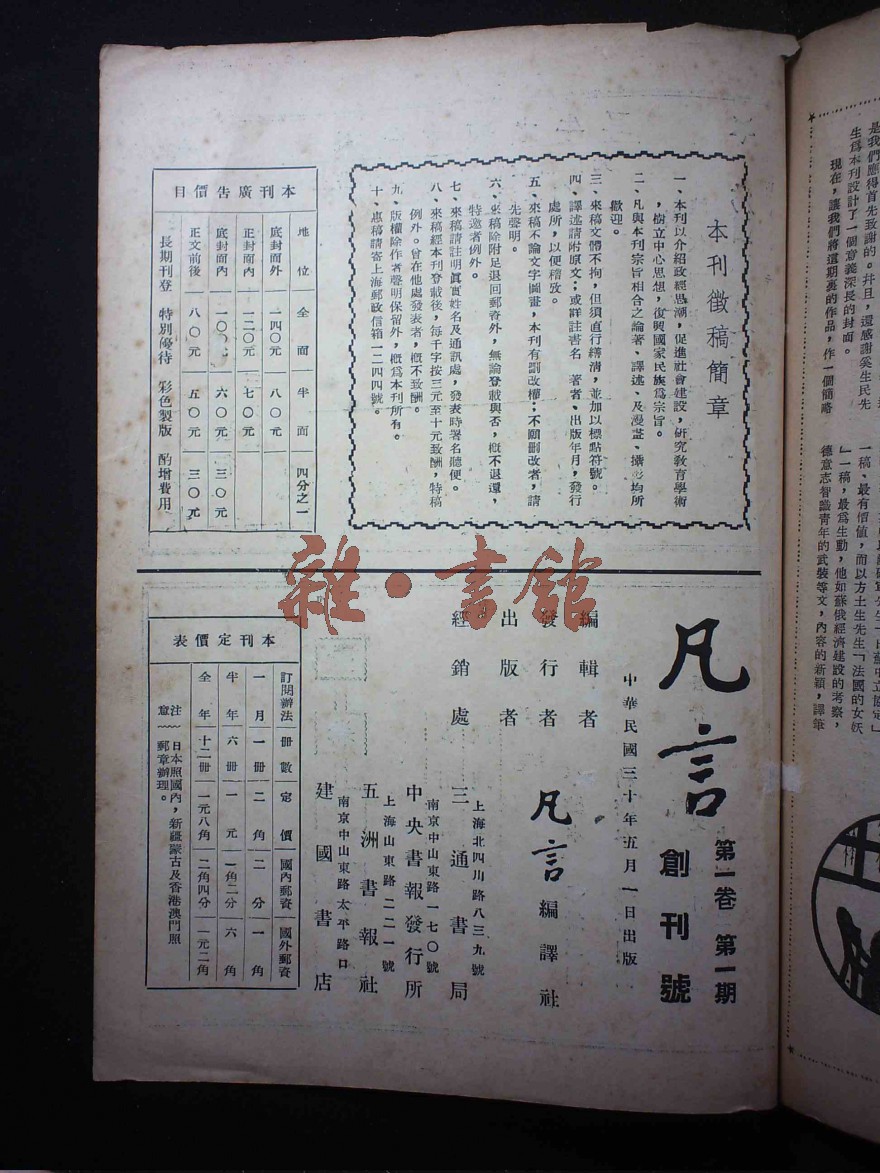 本刊徵稿簡章
一、本刊以介紹政經思潮，促進社會建設，研究教育學術
，樹立中心思想，復興國家民族爲宗旨。
二、凡與本刊宗旨相合之論著、譯述、及漫畫、攝影均所
歡迎。
三、來稿文體不拘，但須直行繕清，並加以標點符號。
四、譯述請附原文；或詳註書名　著者、出版年月，發行
處所，以便稽攷。
五、來稿不論文字圖畫，本刊有删改權；不願删改者，請
先聲明。
六、來稿除附足退回郵資外，無論登載與否，概不退還，
特邀者例外。
七、來稿請註明眞實姓名及通訊處，發表時署名聽便。
八、來稿經本刊登載後，每千字按三元至十元致酬，特稿
例外。曾在他處發表者，概不致酬。
九、版權除作者聲明保留外，概爲本刊所有。
十、惠稿請寄上海郵政信箱一二四四號。
本刊廣告價目
地位　全面　半面　四分之一
底封面外　一四〇元　八〇元
正封面內　一二〇元　七〇元
底封面內　一〇〇元　六〇元　三〇元
正文前後　八〇元　五〇元　三〇元
長期刊登　特別優待　彩色製版　酌增費用
凡言　創刊號
第一卷　第一期
中華民國三十年五月一日出版
編輯者
發行者　凡言編譯社
出版者
經銷處　三通書局
上海北四川路八三九號
中央書報發行所
南京中山東路一七〇號
五洲書報社
上海山東路二二一號
建國書店
南京中山東路太平路口
本刊定價表
訂閱辦法　冊數　定價　國內郵資　國外郵資
一月　一冊　二角　二分　一角
半年　六冊　一元　一角二分　六角
全年　十二冊　一元八角　二角四分　一元二角
注意　日本照國內，新疆蒙古及香港澳門照
郵章辦理。
雜·書館
是我們應得首先致謝的。并且，還感謝奚生民先
生爲本刊設計了一個意義深長的封面。
現在，讓我們將這期裏的作品，作一個簡略
一稿、最有價値，而以方土生先生「法國的女妖
」一稿，最爲生動，他如蘇俄經濟建設的考察，
德意志智識青年的武裝等文，內容的新穎，譯筆